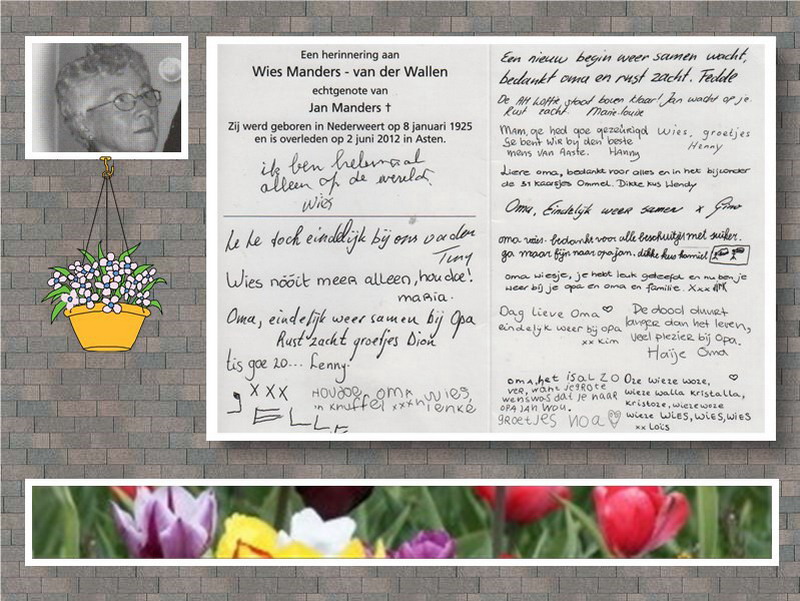 Een herinnering aan
Wies Manders - van der Wallen
echtgenote van
Jan Manders †
Zij werd geboren in Nederweert op 8 januari 1925
en is overleden op 2 juni 2012 in Asten.
ik ben helemaal
alleen op de wereld.
Wies
toch eindelijk bij ons
Tiny
Wies nóóit meer alleen, houdoe!
maria.
Oma, eindelijk weer samen bij Opa
Rust zacht groetjes Dion
tis goe zo... Lenny.
XXX
ELLE
HOUDOE OMA WIES,
'n KNUFFEL xxxx Nienke
Een nieuw begin weer samen wacht,
bedankt oma en rust zacht. Fedde
De stond boven klaar! Jan wacht op je.
Rust zacht. Marie-louise
Mam, ge had goe gezeurigd
Ge bent wir bij den beste
mens van Aaste. Hanny
Wies, groetjes
Henny
Lieve oma, bedankt voor alles en in het bijzonder
de 31 kaarsjes Ommel. Dikke kus Wendy
Oma, Eindelijk weer samen x Gino
oma wies. bedankt voor alle beschuitjes met suiker.
ga maar fijn naar opa jan. dikke kus
oma wiesje, je hebt leuk geleefd en nu ben je
weer bij je opa en oma en familie. Xxx
Dag lieve Oma ♡
eindelijk weer bij opa
xx Kim
De dood duurt
langer dan het leven,
veel plezier bij Opa.
Haije Oma
oma, het is al zo
ver, want je grote
wens was dat je naar
opa Jan wou.
groetjes noa
Oze wieze woze,
wieze walla kristalla,
kristoze, wiezewoze
wieze WIES, WIES, WIES
xx Loïs